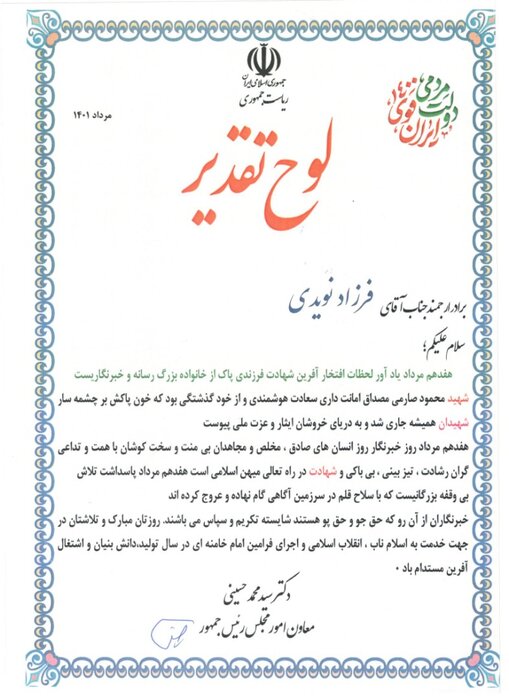 جمهوری اسلامی ایران
ریاست جمهوری
دولت مردمی
ایران قوی
مرداد ۱۴۰۱
لوح تقدیر
برادر ارجمند جناب آقای فرزاد نویدی
سلام علیکم؛
هفدهم مرداد یاد آور لحظات افتخار آفرین شهادت فرزندی پاک از خانواده بزرگ رسانه و خبرنگاریست
شهید محمود صارمی مصداق امانت داری سعادت هوشمندی و از خود گذشتگی بود که خون پاکش بر چشمه سار
شهیدان همیشه جاری شد و به دریای خروشان ایثار و عزت ملی پیوست
هفدهم مرداد روز خبرنگار روز انسان های صادق ، مخلص و مجاهدان بی منت و سخت کوشان با همت و تداعی
گران رشادت ، تیز بینی ، بی باکی و شهادت در راه تعالی میهن اسلامی است هفدهم مرداد پاسداشت تلاش
بی وقفه بزرگانیست که با سلاح قلم در سرزمین آگاهی گام نهاده و عروج کرده اند
خبرنگاران از آن رو که حق جو و حق پو هستند شایسته تکریم و سپاس می باشند. روزتان مبارک و تلاشتان در
جهت خدمت به اسلام ناب ، انقلاب اسلامی و اجرای فرامین امام خامنه ای در سال تولید،دانش بنیان و اشتغال
آفرین مستدام باد ۰
دکتر سید محمد حسینی
معاون امور مجلس رئیس جمهور